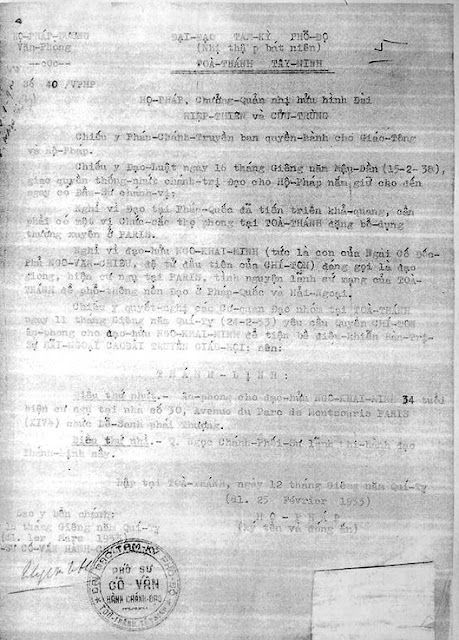 HỘ-PHÁP-ĐƯỜNG
Văn-Phòng
--oOo--
Số 40 /VPHP
ĐẠI-ĐẠO TAM-KỲ PHỔ-ĐỘ
(Nhị thập bát niên)
TOÀ-THÁNH TÂY-NINH
HỘ-PHÁP, Chưởng-Quản nhị hữu hình Đài
HIỆP-THIÊN và CỬU-TRÙNG
Chiếu y Pháp-Chánh-Truyền ban quyền-hành cho Giáo-Tông
và Hộ-Pháp.
Chiếu y Đạo-Luật ngày 16 tháng Giêng năm Mậu-Dần (15-2-38),
giao quyền thống-nhứt chánh-trị Đạo cho Hộ-Pháp nắm giữ cho đến
ngày có Đầu-Sư chánh-vị;
Nghĩ vì Đạo tại Pháp-Quốc đã tiến triển khả-quang, cần
phải có một vị Chức-Sắc thọ phong tại TOÀ-THÁNH đặng bổ-dụng
thường xuyên ở PARIS.
Nghĩ vì đạo-hữu NGÔ-KHAI-MINH (tức là con của Ngài Cố Đốc-
Phủ NGÔ-VĂN-CHIÊU, đệ tử đầu tiên của CHÍ-TÔN) đáng gọi là đạo
dòng, hiện cư ngụ tại PARIS, tình nguyện lãnh sứ mạng của TOÀ-
THÁNH để phổ-thông nền Đạo ở Pháp-Quốc và Hải-Ngoại.
Chiếu y quyết-nghị các Cơ-quan Đạo nhóm tại TOÀ-THÁNH
ngày 11 tháng Giêng năm Quí-Tỵ (24-2-53) yêu cầu Quyền CHÍ-TÔN
ân-phong cho đạo-hữu NGÔ-KHAI-MINH để tiện bề điều-khiển Ban-Trị-
Sự HẢI-NGOẠI CAODÀI TRUYỀN GIÁO-HỘI; nên:
THÁNH-ĐỊNH:
Điều thứ nhứt.- Ân-phong cho đạo-hữu NGÔ-KHAI-MINH 34 tuổi
hiện cư ngụ tại nhà số 30, Avenue du Parc de Montsouris PARIS
(XIV) chức Lễ-Sanh phái Thượng.
Điều thứ nhì.- Q. Ngọc Chánh-Phối-Sư lãnh thi-hành đạo
Thánh-Định nầy.
Lập tại TOÀ-THÁNH, ngày 12 tháng Giêng năm Quí-Tỵ
(dl. 25 Février 1953)
HỘ-PHÁP
(ký tên và đóng ấn)
Sao y bản chánh:
tháng Giêng năm Quí-Tỵ
(dl. 1er Mars
ĐẠI-ĐẠO-TAM-KỲ-PHỔ-ĐỘ
PHỐI SƯ
CỐ VẤN
HÀNH CHÁNH ĐẠO
TOÀ-THÁNH TÂY-NINH